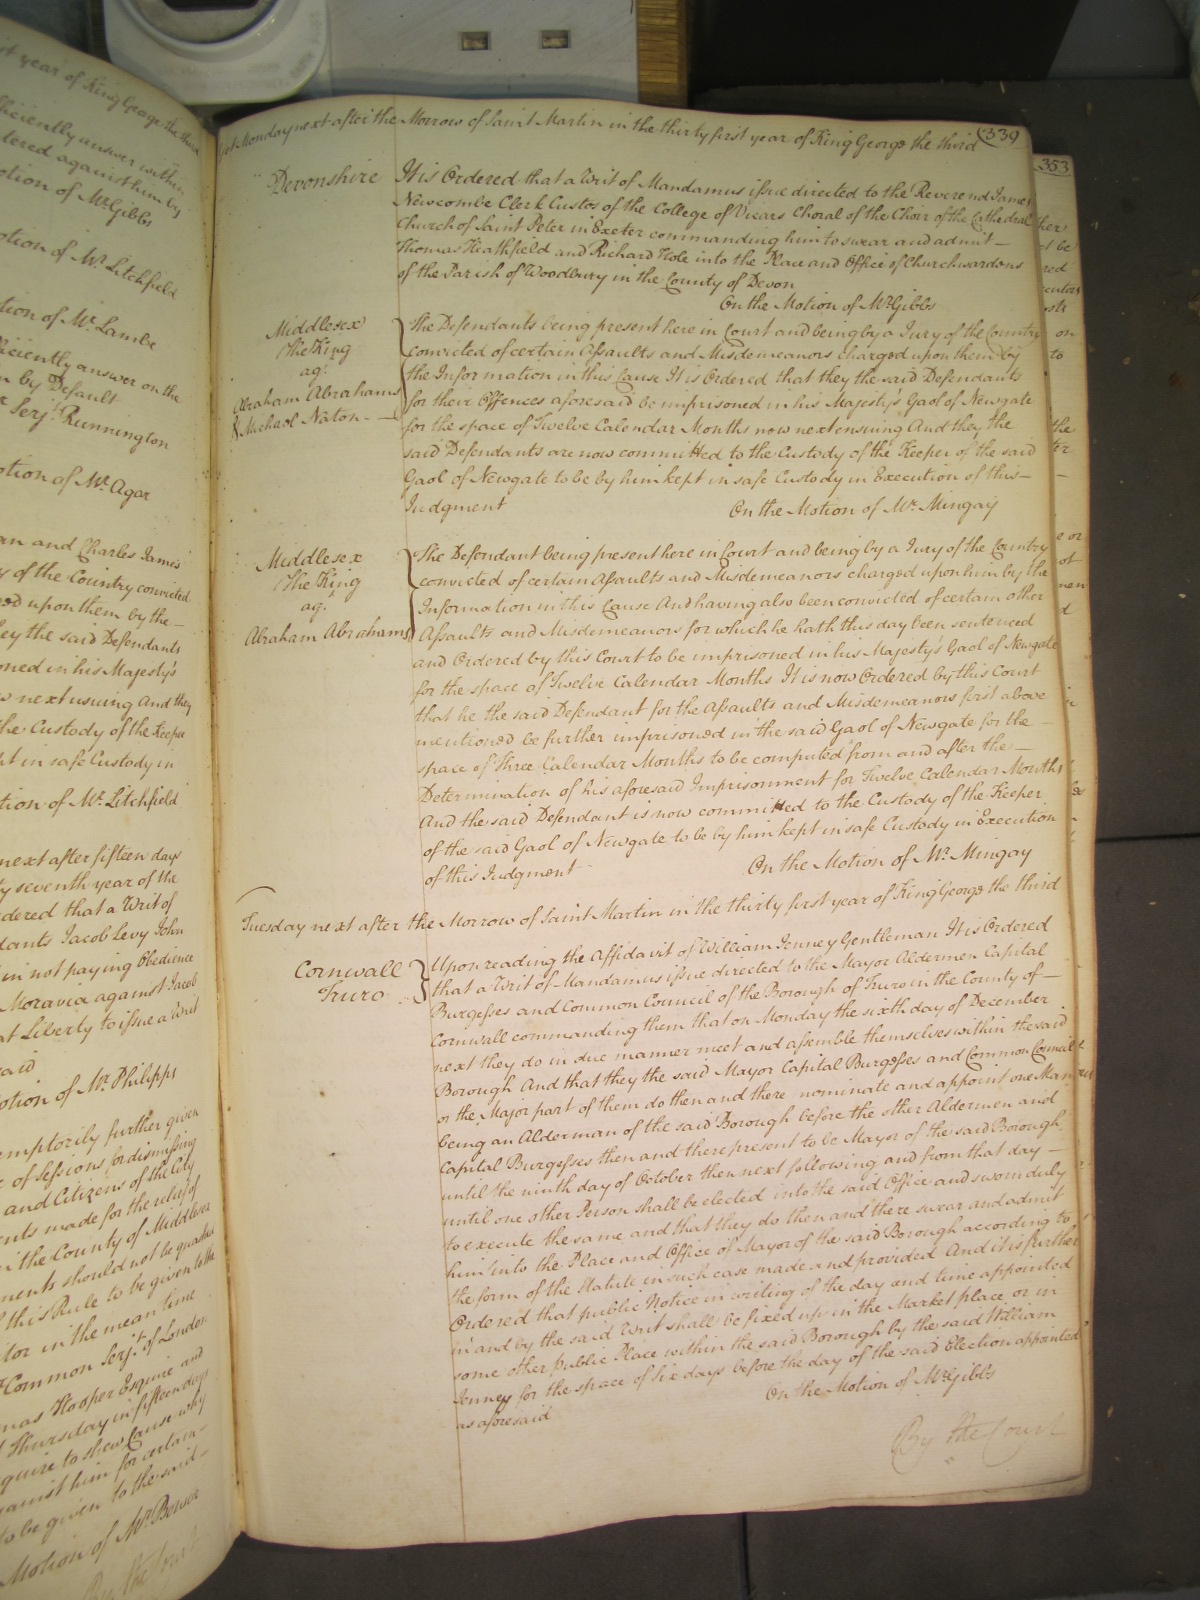 st year of King George the third
fficiently answer within
tered against him by
otion of Mr. Gibbs
otion of Mr. Litchfield
tion of Mr. Lambe
fficiently answer on the
n by Default
r Serjt. Runnington
otion of Mr. Agar
an and Charles James
y of the Country convicted
ed upon them by the
hey the said Defendants
oned in his Majesty's
w next ensuing And they
the Custody of the Keeper
pt in safe Custody in
tion of Mr. Litchfield
next after fifteen days
ty seventh year of the
dered that a Writ of
dants Jacob Levy John
in not paying Obedience
Moravia against Jacob
at Liberty to issue a Writ
said
otion of Mr. Philipps
emptorily further given
r of Sessions for dismissing
and Citizens of the City
ents made for the relief of
in the County of Middlesex
ments should not be quashed
f this Rule to be given to the
tor in the mean time
Common Serjt. of London
mas Hooper Esquire and
Thursday in fifteen days
quire to shew Cause why
gainst him for certain
to be given to the said
Motion of Mr. Benson
By the Court
339
Monday next after the Morrow of Saint Martin in the thirty first year of King George the third
Devonshire
It is Ordered that a Writ of Mandamus issue directed to the Reverend James
Newcombe Clerk Custos of the College of Vicars Choral of the Choir of the Cathedral
Church of Saint Peter in Exeter commanding him to swear and admit
Thomas Heathfield and Richard Hole into the Place and Office of Churchwardens
of the Parish of Woodbury in the County of Devon
On the Motion of Mr. Gibbs
Middlesex
The King
agt.
Abraham Abrahams
& Michael Naton
The Defendants being present here in Court and being by a Jury of the Country
convicted of certain Assaults and Misdemeanors charged upon them by
the Information in this Cause It is Ordered that they the said Defendants
for their Offences aforesaid be imprisoned in his Majesty's Gaol of Newgate
for the space of Twelve Calendar Months now next ensuing And they the
said Defendants are now committed to the Custody of the Keeper of the said
Gaol of Newgate to be by him kept in safe Custody in Execution of this
Judgment
On the Motion of Mr. Mingay
Middlesex
The King
agt.
Abraham Abrahams
The Defendant being present here in Court and being by a Jury of the Country
convicted of certain Assaults and Misdemeanors charged upon him by the
Information in this Cause And having also been convicted of certain other
Assaults and Misdemeanors for which he hath this day been sentenced
and Ordered by this Court to be imprisoned in his Majesty's Gaol of Newgate
for the space of Twelve Calendar Months It is now Ordered by this Court
that he the said Defendant for the Assaults and Misdemeanors first above
mentioned be further imprisoned in the said Gaol of Newgate for the
space of Three Calendar Months to be computed from and after the
Determination of his aforesaid Imprisonment for Twelve Calendar Months
And the said Defendant is now committed to the Custody of the Keeper
of the said Gaol of Newgate to be by him kept in safe Custody in Execution
of this Judgment
On the Motion of Mr. Mingay
Tuesday next after the Morrow of Saint Martin in the thirty first year of King George the third
Cornwall
Truro
Upon reading the Affidavit of William Jenney Gentleman It is Ordered
that a Writ of Mandamus issue directed to the Mayor Aldermen Capital
Burgesses and Common Council of the Borough of Truro in the County of
Cornwall commanding them that on Monday the sixth day of December
next they do in due manner meet and assemble themselves within the said
Borough And that they the said Mayor Capital Burgesses and Common Council
or the Major part of them do then and there nominate and appoint one Man
being an Alderman of the said Borough before the other Aldermen and
Capital Burgesses then and there present to be Mayor of the said Borough
until the ninth day of October then next following and from that day
until one other Person shall be elected into the said Office and sworn duly
to execute the same and that they do then and there swear and admit
him into the Place and Office of Mayor of the said Borough according to
the form of the Statute in such case made and provided And it is further
Ordered that public Notice in writing of the day and time appointed
in and by the said Writ shall be fixed up in the Market place or in
some other public Place within the said Borough by the said William
Jenney for the space of six days before the day of the said Election appointed
as aforesaid
On the Motion of Mr. Gibbs
By the Court
353